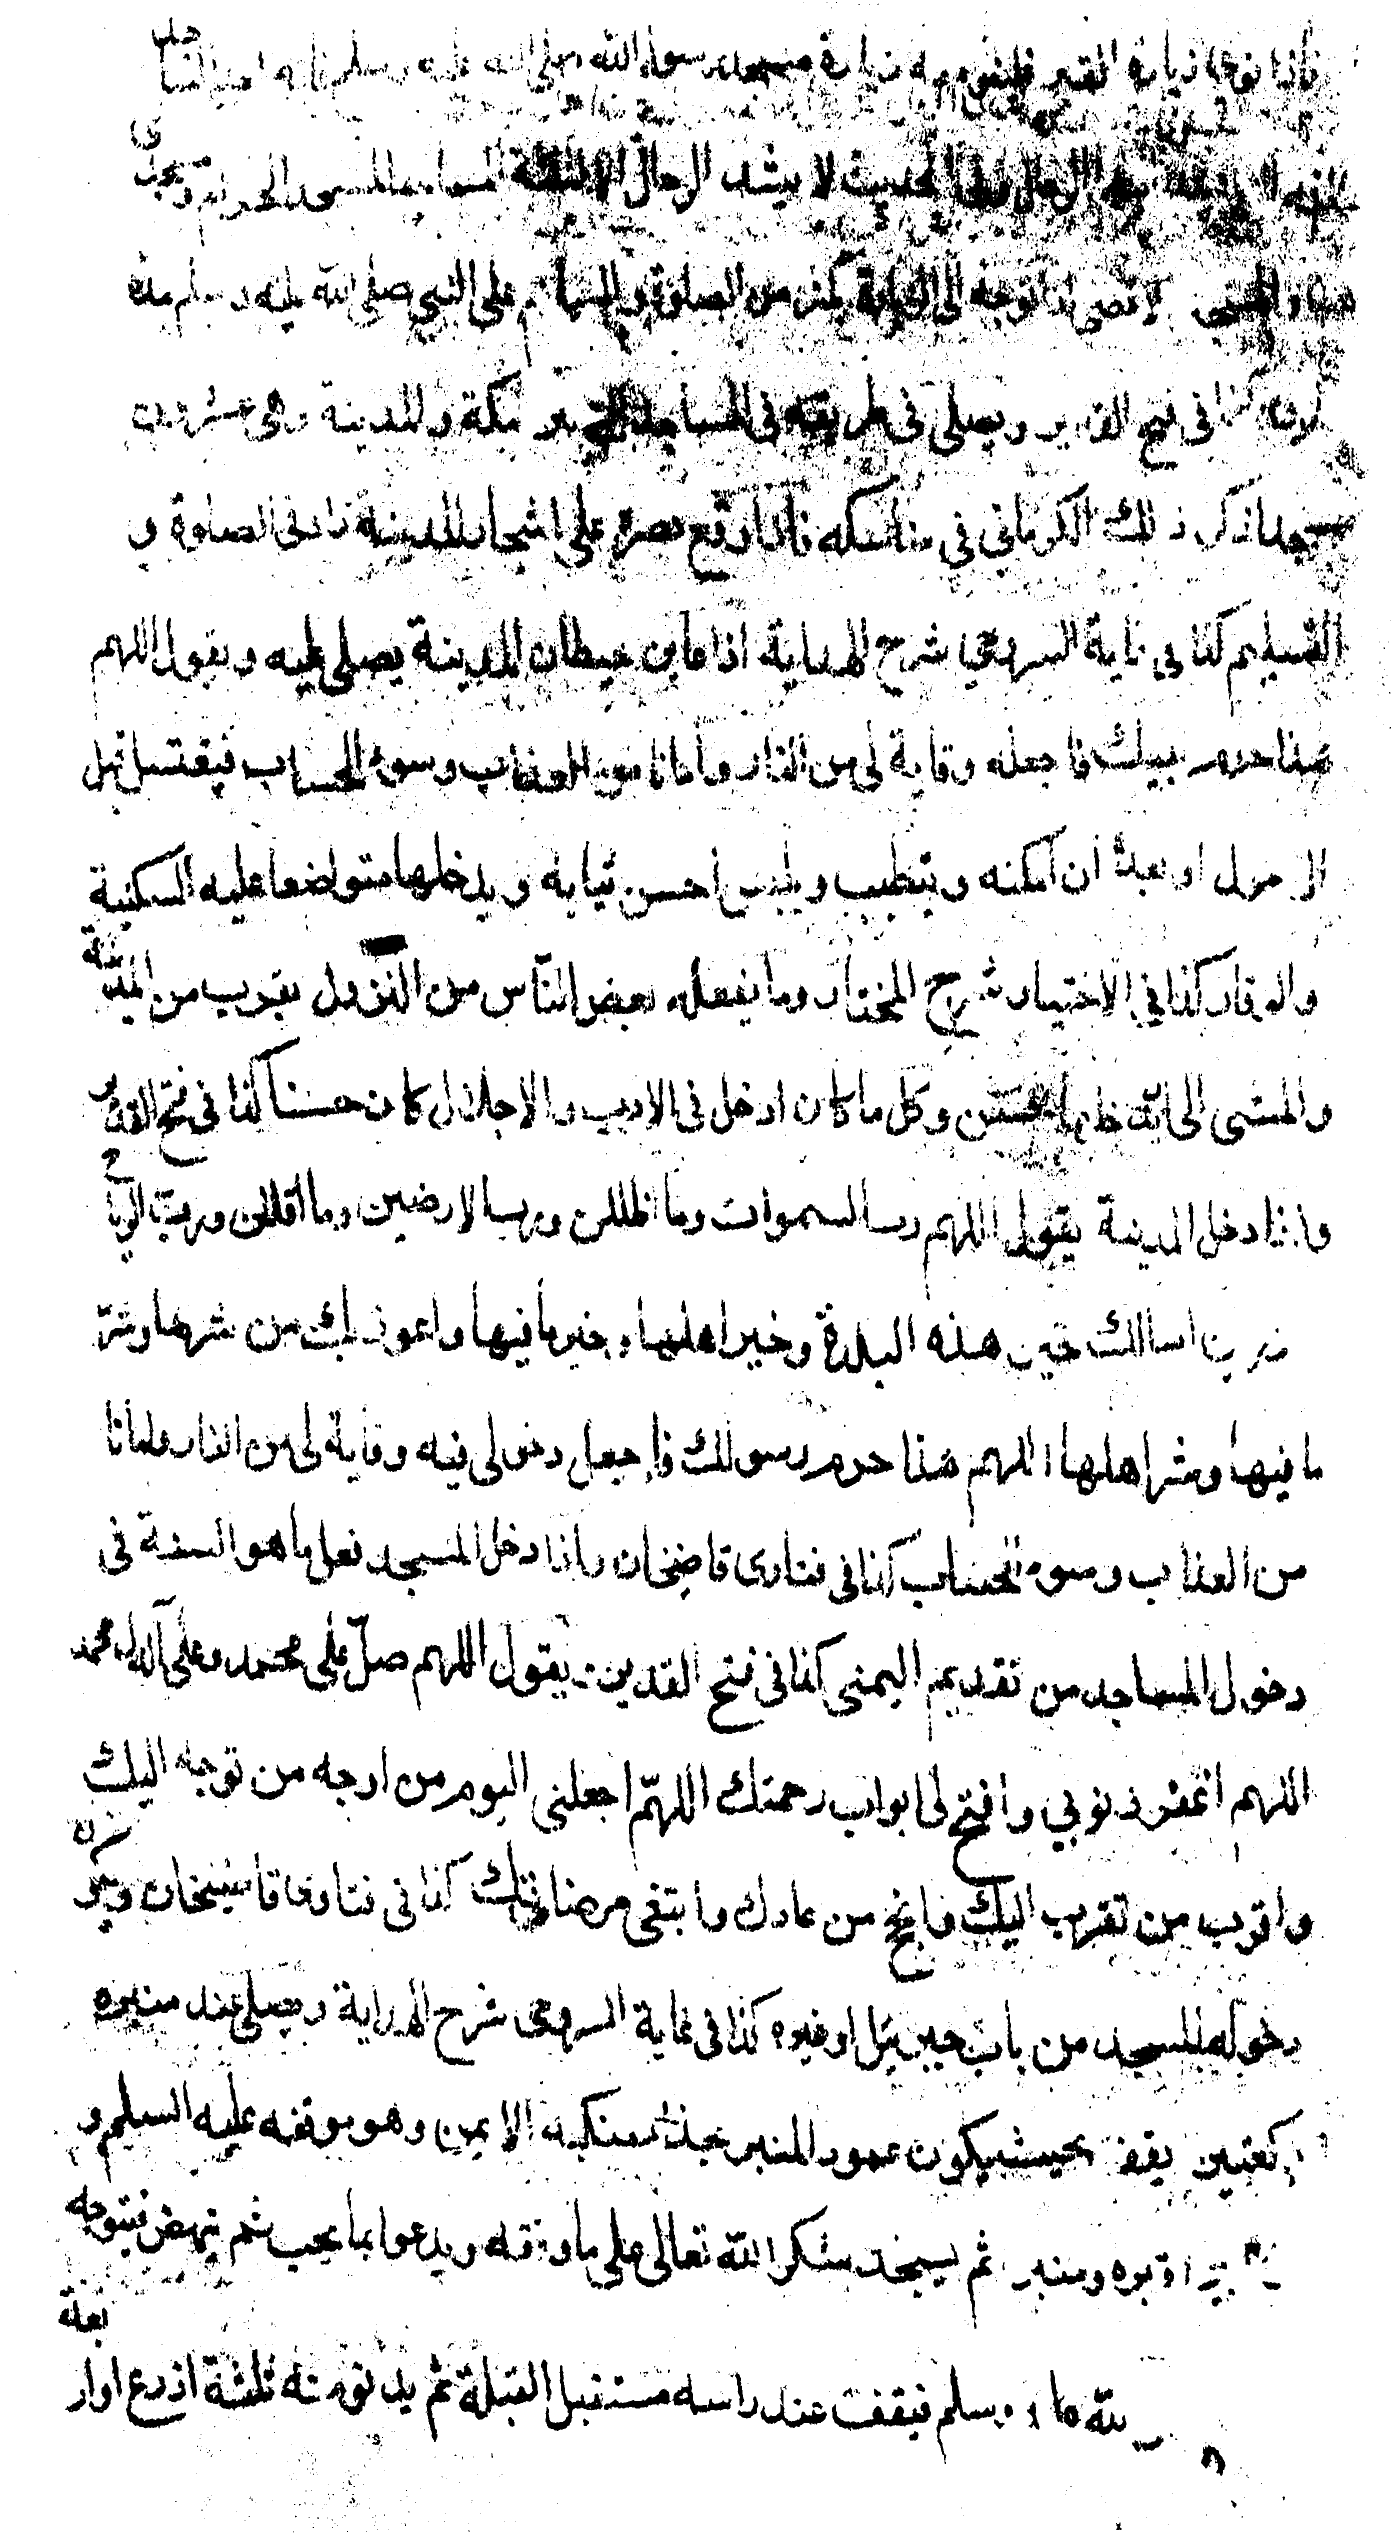 فاذا نوى زيارة القبر فلينو معه زيارة مسجد رسول الله صلى الله عليه وسلم فانه احد المساجد
الثلثة التى تشد اليها الرحال وفى الحديث لا يشد الرحال الا لثلثة المساجد المسجد الحرام ومسجدى
هذا والمسجد الاقصى واذا توجه الى الزيارة يكثر من الصلوة والسلام على النبي صلى الله عليه وسلم مدة
كذا فى فتح القدير ويصلى فى طريقه فى المساجد التى بين مكة والمدينة وهى عشرون
مسجدا ذكر ذلك الكرمانى فى مناسكه فاذا وقع بصره على اشجار المدينة زاد فى الصلوة و
التسليم كذا فى غاية السروجي شرح الهداية اذا عاين حيطان المدينة يصلى عليه ويقول اللهم
هذا حرم نبيك فاجعله وقاية لى من النار وامانا من العذاب وسوء الحساب فيغتسل قبل
الدخول او بعده ان امكنه ويتطيب ويلبس احسن ثيابه ويدخلها متواضعا عليه السكينة
والوقار كذا في الاختيار شرح المختار وما يفعله بعض الناس من النزول بقرب من المدينة
والمشى الى ان يدخلها حسن وكل ما كان ادخل فى الادب والاجلال كان حسنا كذا فى فتح القدير
واذا دخل المدينة يقول اللهم رب السموات وما اظللن ورب الارضين وما اقللن ورب الرياح
وما ذرين اسالك خير هذه البلدة وخير اهلها وخير ما فيها واعوذ بك من شرها وشر
ما فيها وشر اهلها اللهم هذا حرم رسولك فاجعل دخولى فيه وقاية لى من النار وامانا
من العذاب وسوء الحساب كذا فى فتاوى قاضيخان واذا دخل المسجد فعل ما هو السنة فى
دخول المساجد من تقديم اليمنى كذا فى فتح القدير ويقول اللهم صل على محمد وعلى آل محمد
اللهم اغفر ذنوبي وافتح لى ابواب رحمتك اللهم اجعلنى اليوم من اوجه من توجه اليك
واقرب من تقرب اليك وانجح من دعاك وابتغى مرضاتك كذا فى فتاوى قاضيخان ويكون
دخوله المسجد من باب جبريل او غيره كذا فى غاية السروجى شرح الهداية ويصلى عند منبره
ركعتين يقف بحيث يكون عمود المنبر بحذاء منكبه الايمن وهو موقفه عليه السلم و
هو بين قبره ومنبره ثم يسجد شكرا لله تعالى على ما وفقه ويدعوا بما يحب ثم ينهض فيتوجه
وسلم فيقف عند راسه مستقبل القبلة ثم يدنو منه ثلثة اذرع او اربعة